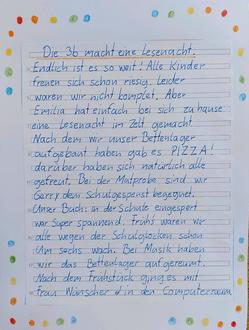 Die 3b macht eine Lesenacht.
Endlich ist es so weit! Alle Kinder
freuen sich schon riesig. Leider
waren wir nicht komplet. Aber
Emilia hat einfach bei sich zuhause
eine Lesenacht im Zelt gemacht
Nach dem wir unser Bettenlager
aufgebaut haben gab es PIZZA!
darüber haben sich natürlich alle
gefreut. Bei der Matprobe sind wir
Gerry dem Schulgespenst begegnet.
Unser Buch: in der Schule eingespert
war Super spannend. früh waren wir
alle wegen der Schulglocken schon
Um sechs wach. Bei Musik haben
wir das Bettenlager aufgeräumt.
Nach dem Frühstück ging es mit
frau Wünscher in den Computerraum